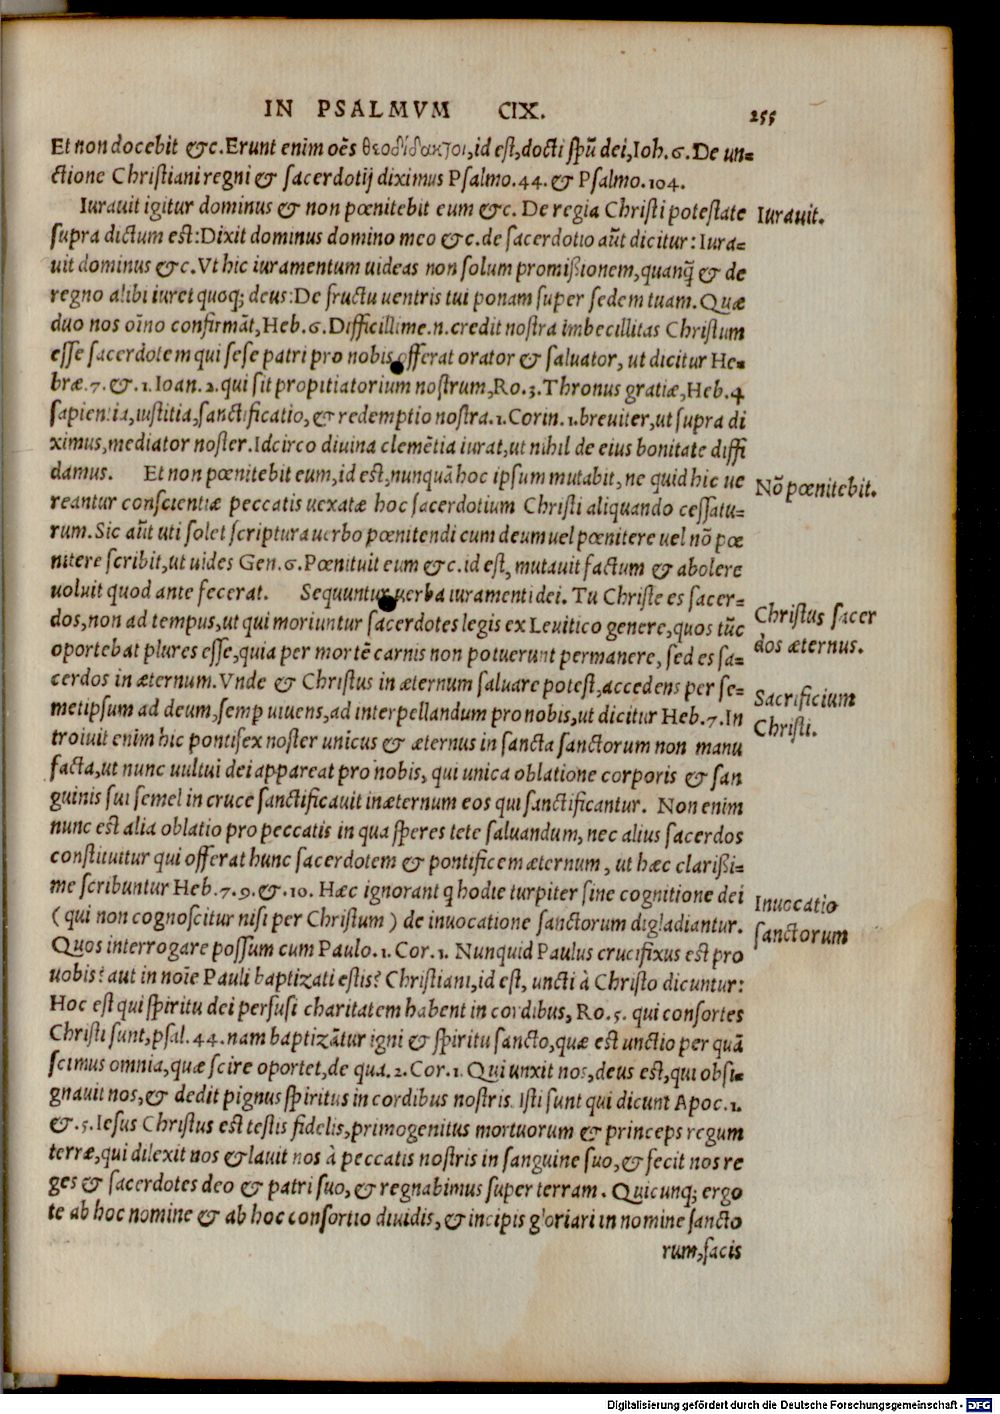 IN PSALMVM CIX. 255
Et non docebit &c. Erunt enim oẽs θεοδίδακτοι, id est, docti spũ dei, Ioh. 6. De un-
ctione Christiani regni & sacerdotij diximus Psalmo. 44. & Psalmo. 104.
Iurauit igitur dominus & non pœnitebit eum &c. De regia Christi potestate
Iurauit.
supra dictum est: Dixit dominus domino meo &c. de sacerdotio aũt dicitur: Iura-
uit dominus &c. Vt hic iuramentum uideas non solum promißionem, quanq̃ & de
regno alibi iuret quoq; deus: De fructu uentris tui ponam super sedem tuam. Quæ
duo nos oĩno confirmãt, Heb. 6. Difficillime .n. credit nostra imbecillitas Christum
esse sacerdotem qui sese patri pro nobis offerat orator & saluator, ut dicitur He-
bræ. 7. & .1. Ioan. 2. qui sit propitiatorium nostrum, Ro. 3. Thronus gratiæ, Heb. 4
sapientia, iustitia, sanctificatio, & redemptio nostra. 1. Corin. 1. breuiter, ut supra di
ximus, mediator noster. Idcirco diuina clemẽtia iurat, ut nihil de eius bonitate diffi
damus. Et non pœnitebit eum, id est, nunquã hoc ipsum mutabit, ne quid hic ue
Nõ pœnitebit.
reantur conscientiæ peccatis uexatæ hoc sacerdotium Christi aliquando cessatu-
rum. Sic aũt uti solet scriptura uerbo pœnitendi cum deum uel pœnitere uel nõ pœ
nitere scribit, ut uides Gen. 6. Pœnituit eum &c. id est, mutauit factum & abolere
uoluit quod ante fecerat. Sequuntur uerba iuramenti dei. Tu Christe es sacer-
dos, non ad tempus, ut qui moriuntur sacerdotes legis ex Leuitico genere, quos tũc
Christus sacer
dos æternus.
oportebat plures esse, quia per mortẽ carnis non potuerunt permanere, sed es sa-
cerdos in æternum. Vnde & Christus in æternum saluare potest, accedens per se-
Sacrificium
Christi.
metipsum ad deum, semp uiuens, ad interpellandum pro nobis, ut dicitur Heb. 7. In
troiuit enim hic pontifex noster unicus & æternus in sancta sanctorum non manu
facta, ut nunc uultui dei appareat pro nobis, qui unica oblatione corporis & san
guinis sui semel in cruce sanctificauit in æternum eos qui sanctificantur. Non enim
nunc est alia oblatio pro peccatis in qua speres te te saluandum, nec alius sacerdos
constituitur qui offerat hunc sacerdotem & pontificem æternum, ut hæc clarißi-
me scribuntur Heb. 7. 9. & .10. Hæc ignorant q hodie turpiter sine cognitione dei
Inuocatio
sanctorum
( qui non cognoscitur nisi per Christum ) de inuocatione sanctorum digladiantur.
Quos interrogare possum cum Paulo. 1. Cor. 1. Nunquid Paulus crucifixus est pro
uobis? aut in noĩe Pauli baptizati estis? Christiani, id est, uncti à Christo dicuntur:
Hoc est qui spiritu dei perfusi charitatem habent in cordibus, Ro. 5. qui consortes
Christi sunt, psal. 44. nam baptizãtur igni & spiritu sancto, quæ est unctio per quã
scimus omnia, quæ scire oportet, de qua. 2. Cor. 1. Qui unxit nos, deus est, qui obsi-
gnauit nos, & dedit pignus spiritus in cordibus nostris. Isti sunt qui dicunt Apoc. 1.
& .5. Iesus Christus est testis fidelis, primogenitus mortuorum & princeps regum
terræ, qui dilexit nos & lauit nos à peccatis nostris in sanguine suo, & fecit nos re
ges & sacerdotes deo & patri suo, & regnabimus super terram. Quicunq; ergo
te ab hoc nomine & ab hoc consortio diuidis, & incipis gloriari in nomine sancto
rum, facis
Digitalisierung gefördert durch die Deutsche Forschungsgemeinschaft - DFG